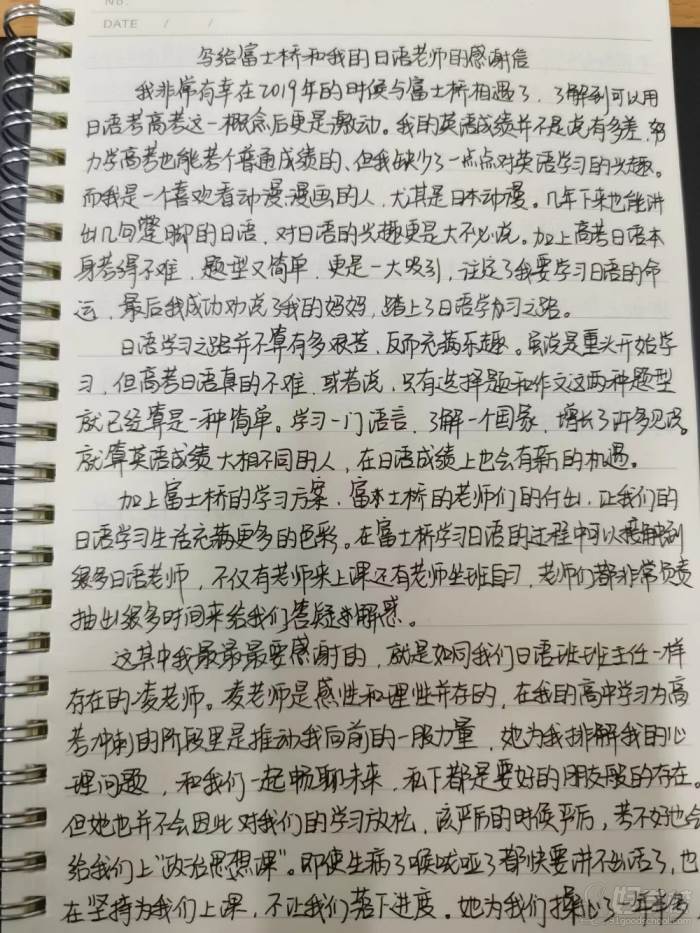 No.
DATE / /
写给富士桥和我的日语老师的感谢信
我非常有幸在2019年的时候与富士桥相遇了,了解到可以用
日语考高考这一概念后更是激动。我的英语成绩并不是说有多差,努
力学高考也能考个普通成绩的、但我缺少了一点点对英语学习的兴趣。
而我是一个喜欢看动漫漫画的人,尤其是日本动漫。几年下来也能讲
出几句蹩脚的日语,对日语的兴趣更是大不必说。加上高考日语本
身考得不难,题型又简单,更是一大吸引,注定了我要学习日语的命
运,最后我成功劝说了我的妈妈,踏上了日语学习之路。
日语学习之路并不算有多艰苦、反而充满乐趣。虽说是重头开始学
习,但高考日语真的不难,或者说,只有选择题和作文这两种题型
就已经算是一种简单。学习一门语言,了解一个国家,增长了许多见识。
就算英语成绩大相不同的人,在日语成绩上也会有新的机遇。
加上富士桥的学习方案,富士桥的老师们的付出,让我们的
日语学习生活充满更多的色彩。在富士桥学习日语的过程中可以接触到
很多日语老师,不仅有老师来上课还有老师坐班自习,老师们都非常负责
抽出很多时间来给我们答疑解惑。
这其中我最最最要感谢的,就是如同我们日语班班主任一样
存在的凌老师。凌老师是感性和理性并存的,在我的高中学习为高
考冲刺的阶段里是推动我向前的一股力量,她为我排解我的心
理问题,和我们一起畅聊未来,私下都是要好的朋友般的存在。
但她也并不会因此对我们的学习放松,该严厉的时候严厉,考不好她会
给我们上“政治思想课”。即使生病了喉咙哑了都快要讲不出话了,也
在坚持为我们上课,不让我们落下进度。她为我们操心了一年多